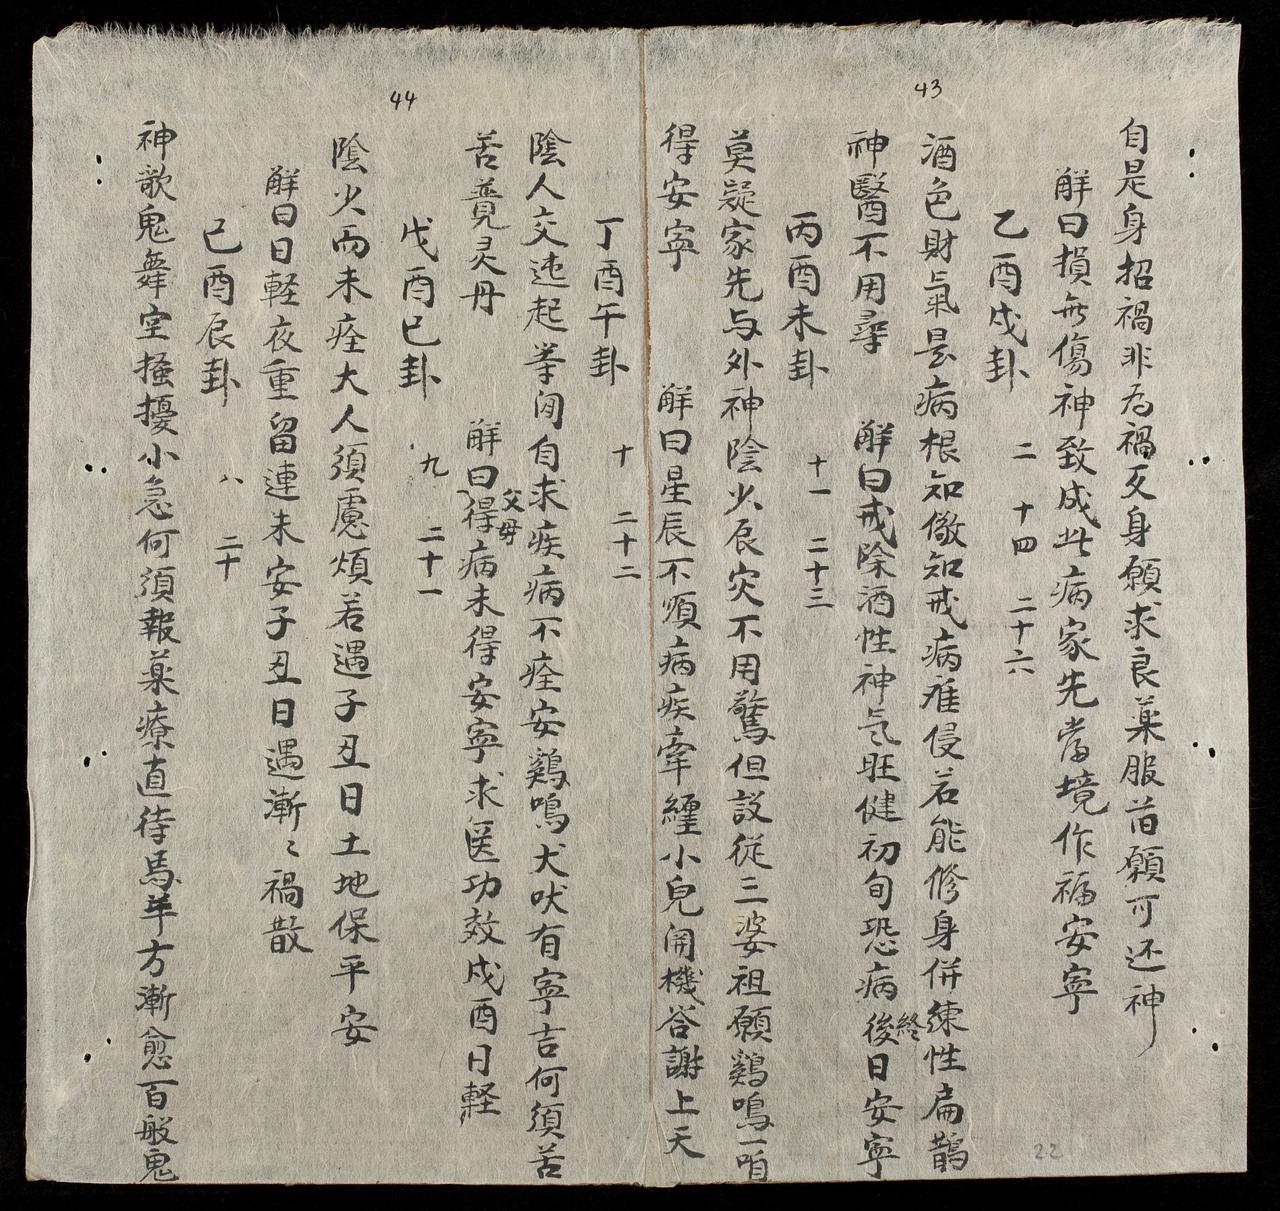 43
自是身招禍非为禍及身願求良薬服旹願可还神
觧曰損無傷神致成此病家先當境作福安寧
乙酉戍卦 二 十四 二十六
酒色財与氣是病根知儆知戒病难侵若能修身併練性扁鵲
神醫不用尋 觧曰戒除酒性神气旺健初旬恐病後終日安寧
丙酉未卦 十一 二十三
莫疑家先与外神陰少辰灾不用驚但設従三婆祖願鷄鳴一咱
得安寧 觧曰星辰不順病疾牽纏小兒関機答謝上天
44
丁酉午卦 十 二十二
陰人交迍起挙闹自求疾病不痊安鷄鳴犬吠有寧吉何須苦
苦覓灵丹 觧曰得父母病未得安寧求医功效戍酉日軽
戊酉巳卦 九 二十一
陰少而未痊大人須慮煩若遇子丑日土地保平安
觧曰日軽夜重留連未安子丑日遇漸〻禍散
己酉辰卦 八 二十
神歌鬼舞空掻擾小急何須報薬療直待馬羊方漸愈百般鬼
22